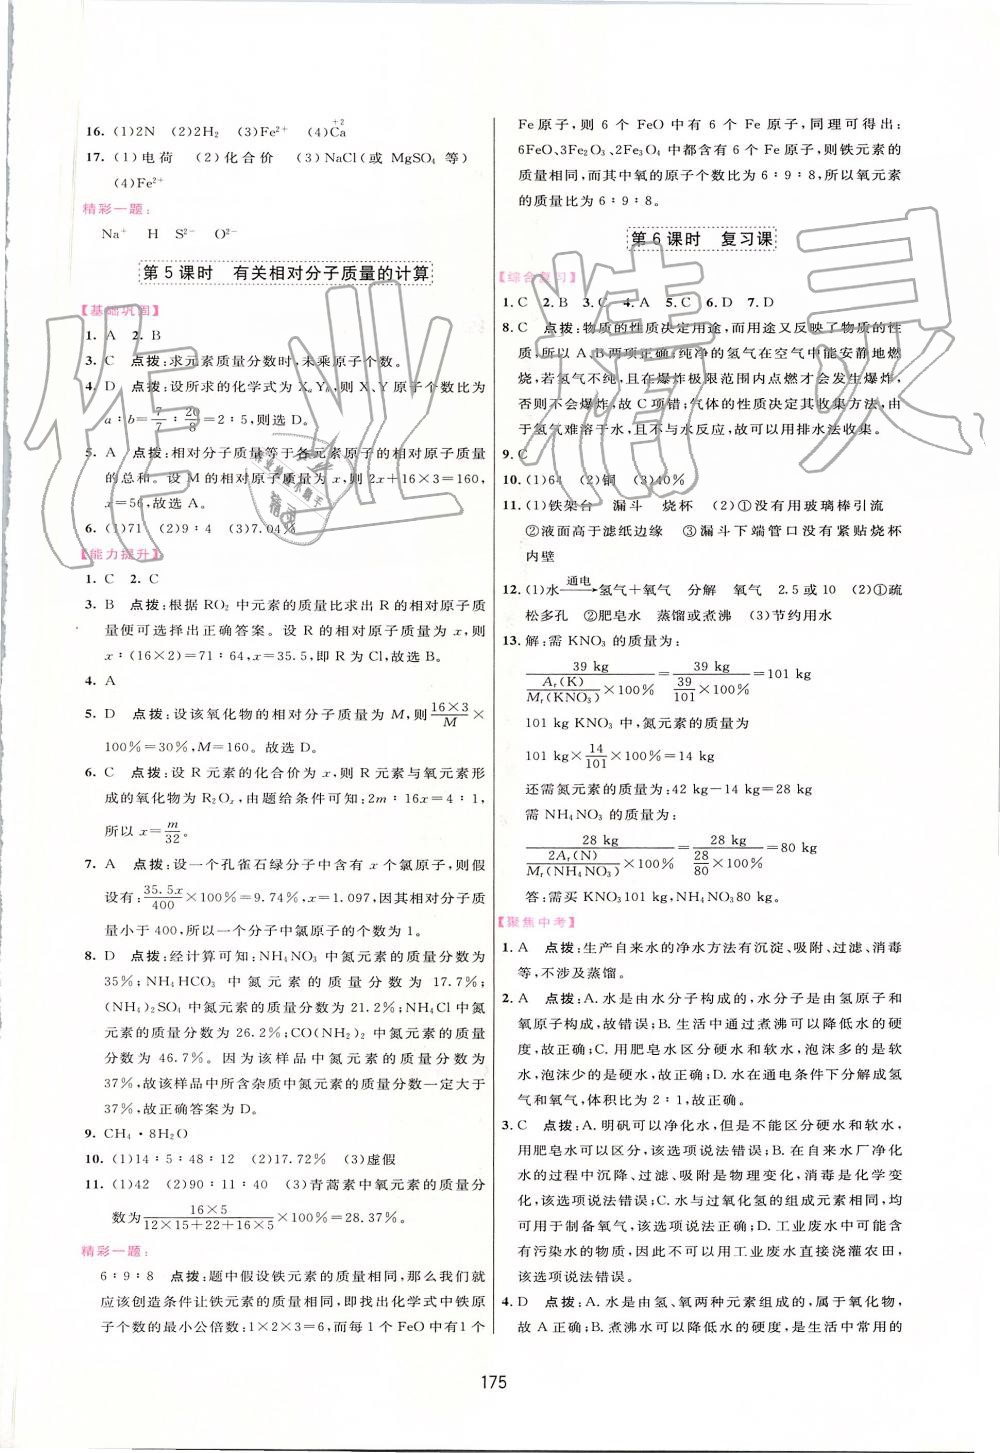 16. (1)2N (2)2H₂ (3)Fe²⁺ (4)Ca(+2)
17. (1)电荷 (2)化合价 (3)NaCl(或 MgSO₄ 等)
(4)Fe²⁺
精彩一题:
Na⁺ H S²⁻ O²⁻
第5课时 有关相对分子质量的计算
【基础巩固】
1. A 2. B
3. C 点拨:求元素质量分数时,未乘原子个数。
4. D 点拨:设所求的化学式为 XₐYᵦ,则 X、Y 原子个数比为
a∶b=7/7∶20/8=2∶5,则选 D。
5. A 点拨:相对分子质量等于各元素原子的相对原子质量
的总和。设 M 的相对原子质量为 x,则 2x+16×3=160,
x=56,故选 A。
6. (1)71 (2)9∶4 (3)7.04%
【能力提升】
1. C 2. C
3. B 点拨:根据 RO₂ 中元素的质量比求出 R 的相对原子质
量便可选择出正确答案。设 R 的相对原子质量为 x,则
x∶(16×2)=71∶64,x=35.5,即 R 为 Cl,故选 B。
4. A
5. D 点拨:设该氧化物的相对分子质量为 M,则(16×3)/M×
100%=30%,M=160。故选 D。
6. C 点拨:设 R 元素的化合价为 x,则 R 元素与氧元素形
成的氧化物为 R₂Oₓ,由题给条件可知:2m∶16x=4∶1,
所以 x=m/32。
7. A 点拨:设一个孔雀石绿分子中含有 x 个氯原子,则假
设有:35.5x/400×100%=9.74%,x=1.097,因其相对分子质
量小于 400,所以一个分子中氯原子的个数为 1。
8. D 点拨:经计算可知:NH₄NO₃ 中氮元素的质量分数为
35%;NH₄HCO₃ 中氮元素的质量分数为 17.7%;
(NH₄)₂SO₄ 中氮元素的质量分数为 21.2%;NH₄Cl 中氮
元素的质量分数为 26.2%;CO(NH₂)₂ 中氮元素的质量
分数为 46.7%。因为该样品中氮元素的质量分数为
37%,故该样品中所含杂质中氮元素的质量分数一定大于
37%,故正确答案为 D。
9. CH₄·8H₂O
10. (1)14∶5∶48∶12 (2)17.72% (3)虚假
11. (1)42 (2)90∶11∶40 (3)青蒿素中氧元素的质量分
数为(16×5)/(12×15+22+16×5)×100%=28.37%。
精彩一题:
6∶9∶8 点拨:题中假设铁元素的质量相同,那么我们就
应该创造条件让铁元素的质量相同,即找出化学式中铁原
子个数的最小公倍数:1×2×3=6,而每 1 个 FeO 中有 1 个
Fe 原子,则 6 个 FeO 中有 6 个 Fe 原子,同理可得出:
6FeO、3Fe₂O₃、2Fe₃O₄ 中都含有 6 个 Fe 原子,则铁元素的
质量相同,而其中氧的原子个数比为 6∶9∶8,所以氧元素
的质量比为 6∶9∶8。
第6课时 复习课
【综合复习】
1. C 2. B 3. C 4. A 5. C 6. D 7. D
8. C 点拨:物质的性质决定用途,而用途又反映了物质的性
质,所以 A、B 两项正确;纯净的氢气在空气中能安静地燃
烧,若氢气不纯,且在爆炸极限范围内点燃才会发生爆炸,
否则不会爆炸,故 C 项错;气体的性质决定其收集方法,由
于氢气难溶于水,且不与水反应,故可以用排水法收集。
9. C
10. (1)64 (2)铜 (3)40%
11. (1)铁架台 漏斗 烧杯 (2)①没有用玻璃棒引流
②液面高于滤纸边缘 ③漏斗下端管口没有紧贴烧杯
内壁
12. (1)水—通电→氢气+氧气 分解 氧气 2.5 或 10 (2)①疏
松多孔 ②肥皂水 蒸馏或煮沸 (3)节约用水
13. 解:需 KNO₃ 的质量为:
39 kg/(Aᵣ(K)/Mᵣ(KNO₃)×100%)=39 kg/(39/101×100%)=101 kg
101 kg KNO₃ 中,氮元素的质量为
101 kg×14/101×100%=14 kg
还需氮元素的质量为:42 kg-14 kg=28 kg
需 NH₄NO₃ 的质量为:
28 kg/(2Aᵣ(N)/Mᵣ(NH₄NO₃)×100%)=28 kg/(28/80×100%)=80 kg
答:需买 KNO₃101 kg,NH₄NO₃80 kg。
【聚焦中考】
1. A 点拨:生产自来水的净水方法有沉淀、吸附、过滤、消毒
等,不涉及蒸馏。
2. A 点拨:A. 水是由水分子构成的,水分子是由氢原子和
氧原子构成,故错误;B. 生活中通过煮沸可以降低水的硬
度,故正确;C. 用肥皂水区分硬水和软水,泡沫多的是软
水,泡沫少的是硬水,故正确;D. 水在通电条件下分解成氢
气和氧气,体积比为 2∶1,故正确。
3. C 点拨:A. 明矾可以净水,但是不能区分硬水和软水,
用肥皂水可以区分,该选项说法错误;B. 在自来水厂净化
水的过程中沉降、过滤、吸附是物理变化,消毒是化学变
化,该选项说法错误;C. 水与过氧化氢的组成元素相同,均
可用于制备氧气,该选项说法正确;D. 工业废水中可能含
有污染水的物质,因此不可以用工业废水直接浇灌农田,
该选项说法错误。
4. D 点拨:A. 水是由氢、氧两种元素组成的,属于氧化物,
故 A 正确;B. 煮沸水可以降低水的硬度,是生活中常用的
175
作业精灵